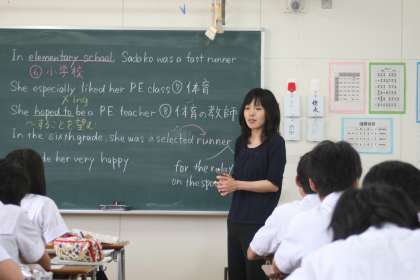 In elementary school, Sadako was a fast runner
⑥小学校
She especially liked her PE class ⑦体育
Xing
She hoped to be a PE teacher ⑧体育の教師
～することを望む
In the sixth grade, she was a selected runner
de her very happy
for the relay
on the spo